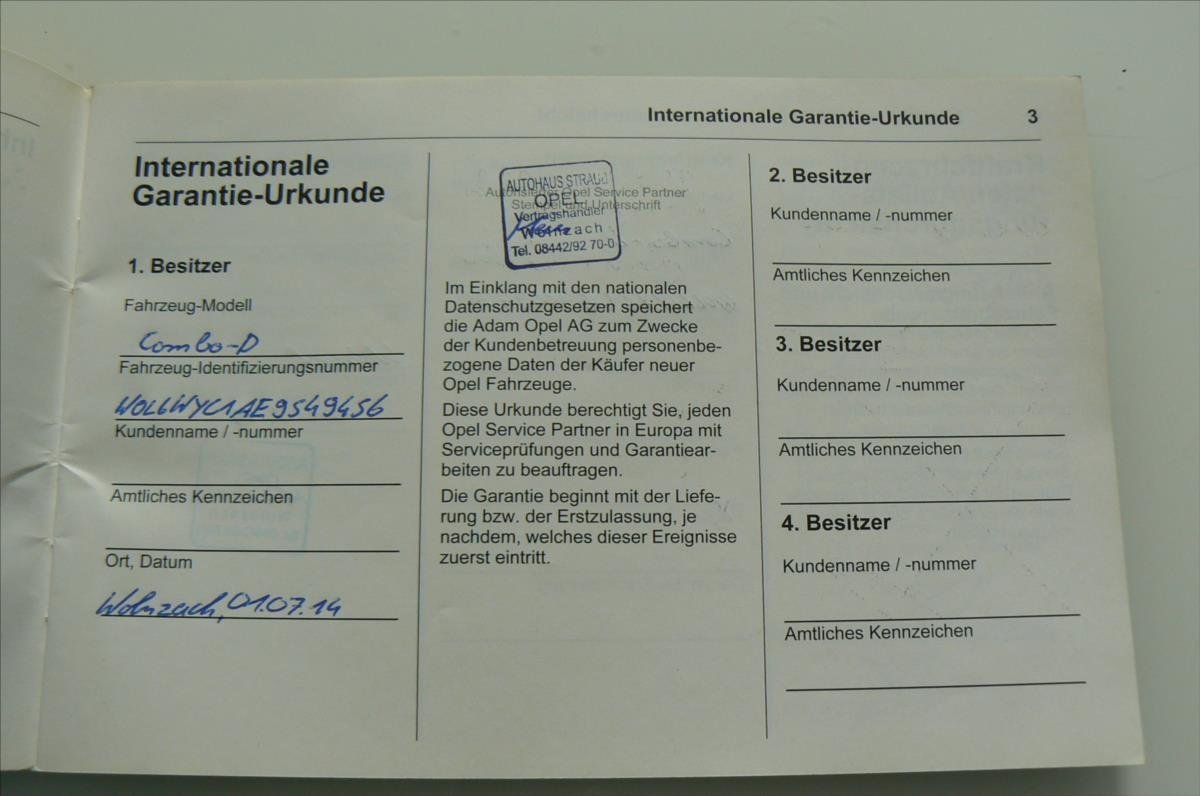 Internationale Garantie-Urkunde 3
Internationale
Garantie-Urkunde
1. Besitzer
Fahrzeug-Modell
Combo-D
Fahrzeug-Identifizierungsnummer
WOL6WYC1AE9549456
Kundenname / -nummer
Amtliches Kennzeichen
Ort, Datum
Wolnzach, 01.07.14
AUTOHAUS STRAUB
Autorisierter Opel Service Partner
OPEL
Stempel und Unterschrift
Vertragshändler
Wolnzach
Tel. 08442/92 70-0
Im Einklang mit den nationalen
Datenschutzgesetzen speichert
die Adam Opel AG zum Zwecke
der Kundenbetreuung personenbe-
zogene Daten der Käufer neuer
Opel Fahrzeuge.
Diese Urkunde berechtigt Sie, jeden
Opel Service Partner in Europa mit
Serviceprüfungen und Garantiear-
beiten zu beauftragen.
Die Garantie beginnt mit der Liefe-
rung bzw. der Erstzulassung, je
nachdem, welches dieser Ereignisse
zuerst eintritt.
2. Besitzer
Kundenname / -nummer
Amtliches Kennzeichen
3. Besitzer
Kundenname / -nummer
Amtliches Kennzeichen
4. Besitzer
Kundenname / -nummer
Amtliches Kennzeichen